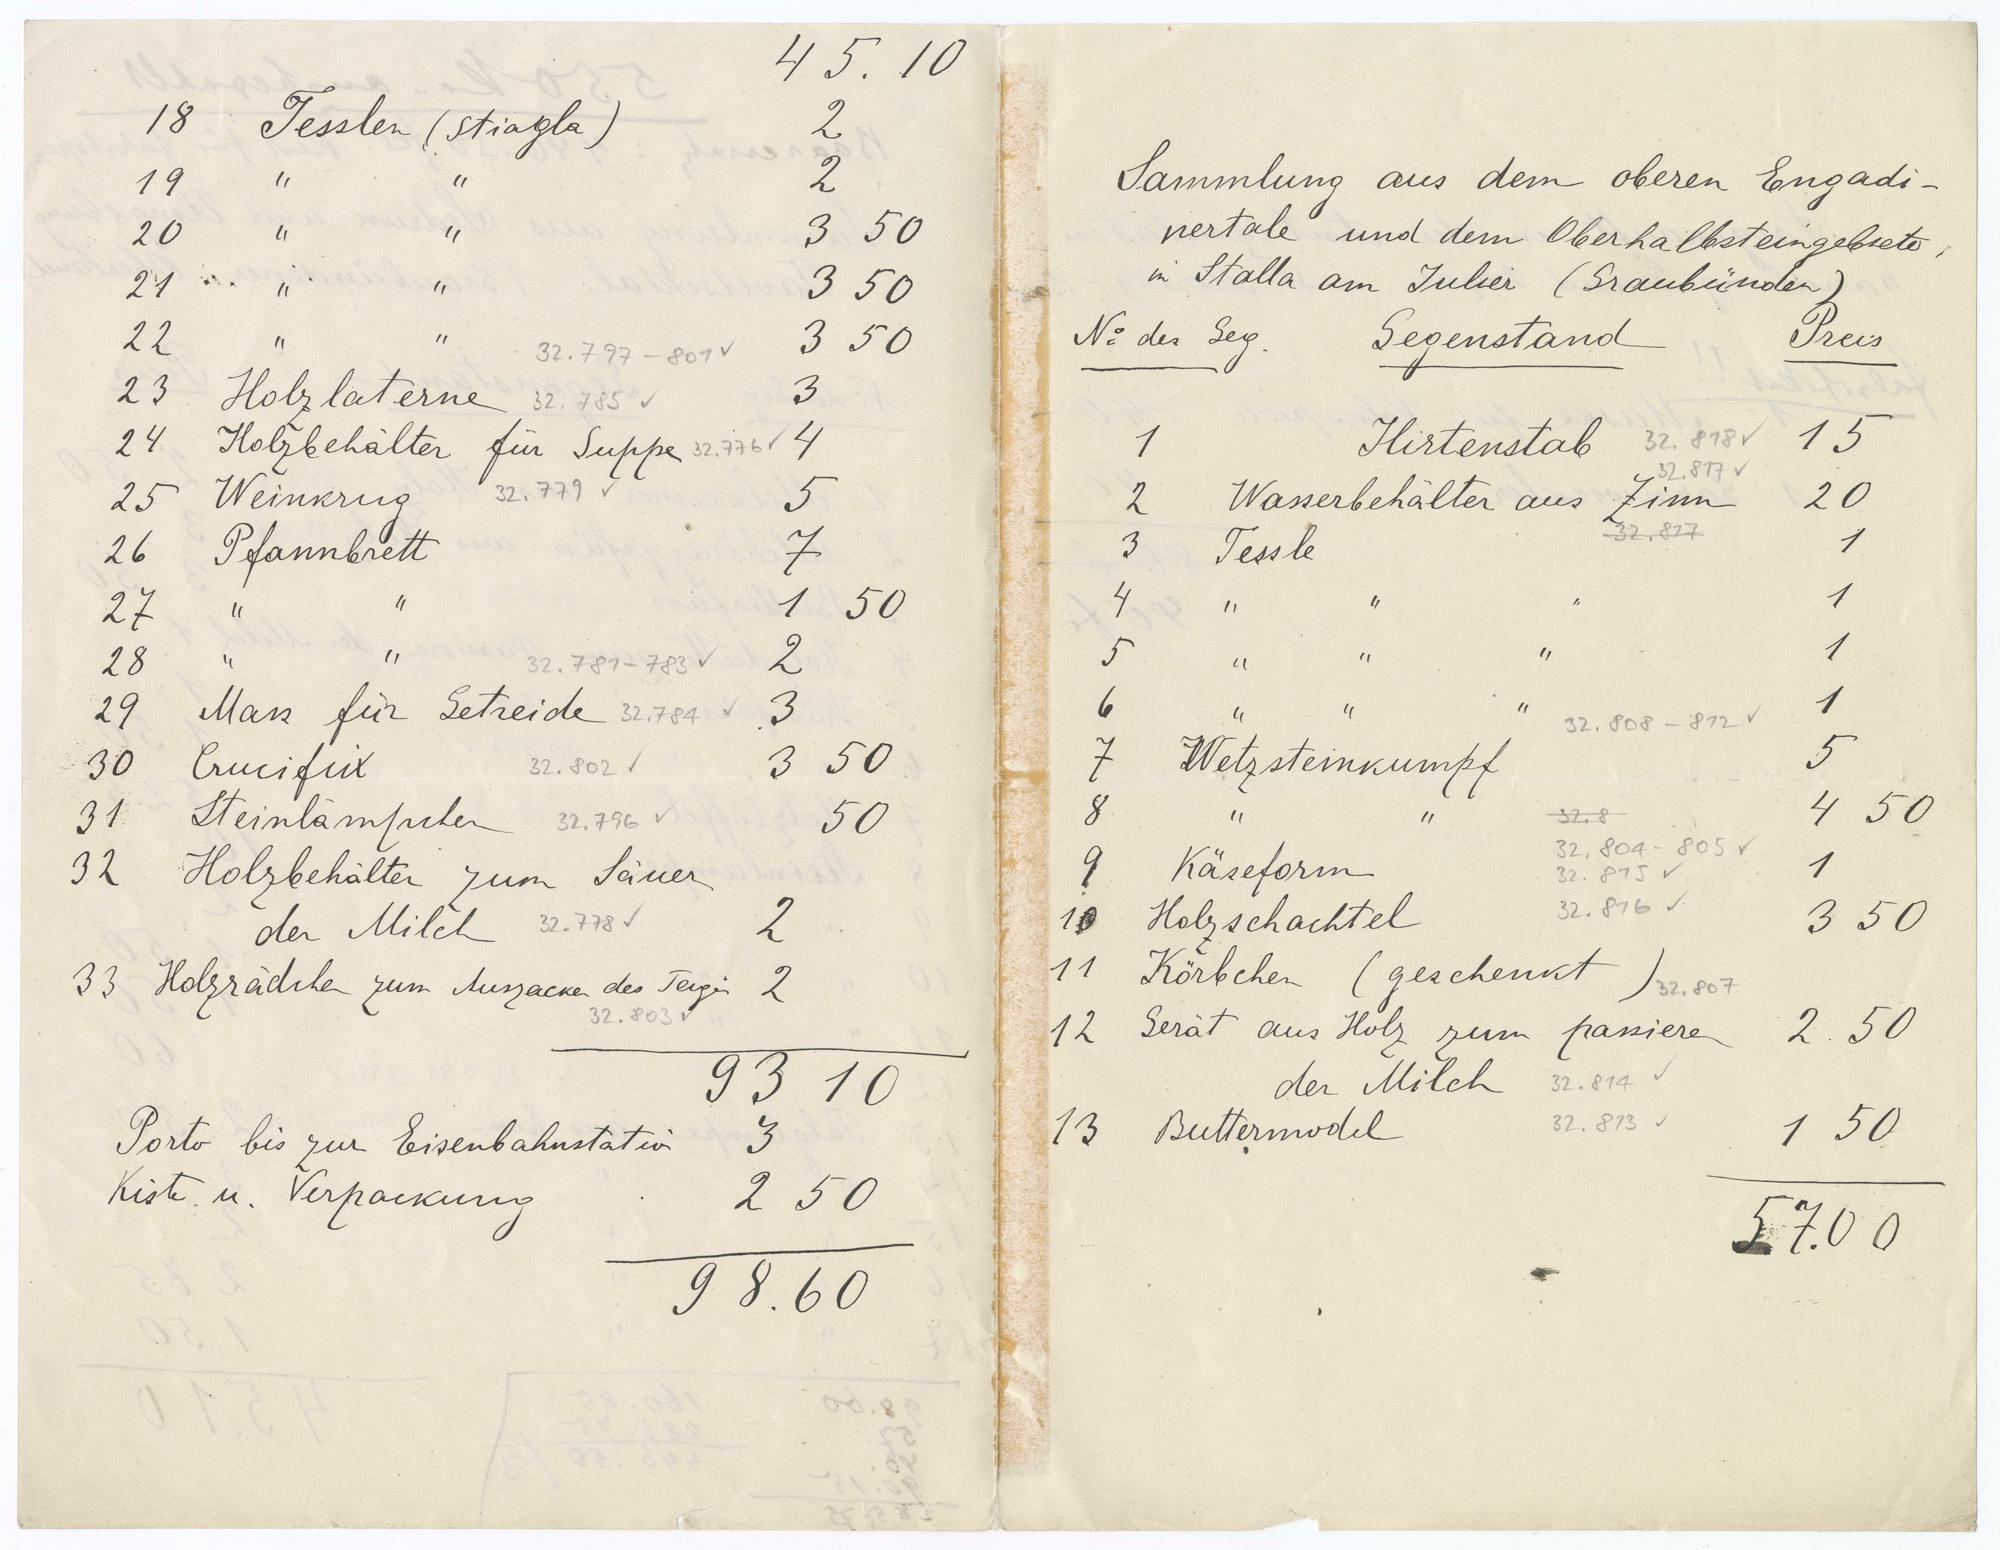 45.10
18 Tesslen (stiagla) 2
19 " " 2
20 " " 3 50
21 " " 3 50
22 " " 32.797-801 ✓ 3 50
23 Holzlaterne 32.785 ✓ 3
24 Holzbehälter für Suppe 32.776 ✓ 4
25 Weinkrug 32.779 ✓ 5
26 Pfannbrett 7
27 " " 1 50
28 " " 32.781-783 ✓ 2
29 Mass für Getreide 32.784 ✓ 3
30 Crucifix 32.802 ✓ 3 50
31 Steinlämpchen 32.796 ✓ 50
32 Holzbehälter zum Säuer
der Milch 32.778 ✓ 2
33 Holzrädchen zum Auszacken des Teiges 2
32.803 ✓
93 10
Porto bis zur Eisenbahnstation 3
Kiste u. Verpackung 2 50
98.60
Sammlung aus dem oberen Engadi-
nertale und dem Oberhalbsteingebiete,
in Stalla am Julier (Graubünden)
No des Geg. Gegenstand Preis
1 Hirtenstab 32.818 ✓ 15
32.817 ✓
2 Wasserbehälter aus Zinn 20
32.817
3 Tessle 1
4 " " " 1
5 " " " 1
6 " " " 32.808-812 ✓ 1
7 Wetzsteinkumpf 5
8 " " 32.8 4 50
32.804-805 ✓
9 Käseform 32.815 ✓ 1
10 Holzschachtel 32.816 ✓ 3 50
11 Körbchen (geschenkt) 32.807
12 Gerät aus Holz zum passieren 2.50
der Milch 32.814 ✓
13 Buttermodel 32.813 ✓ 1 50
57.00